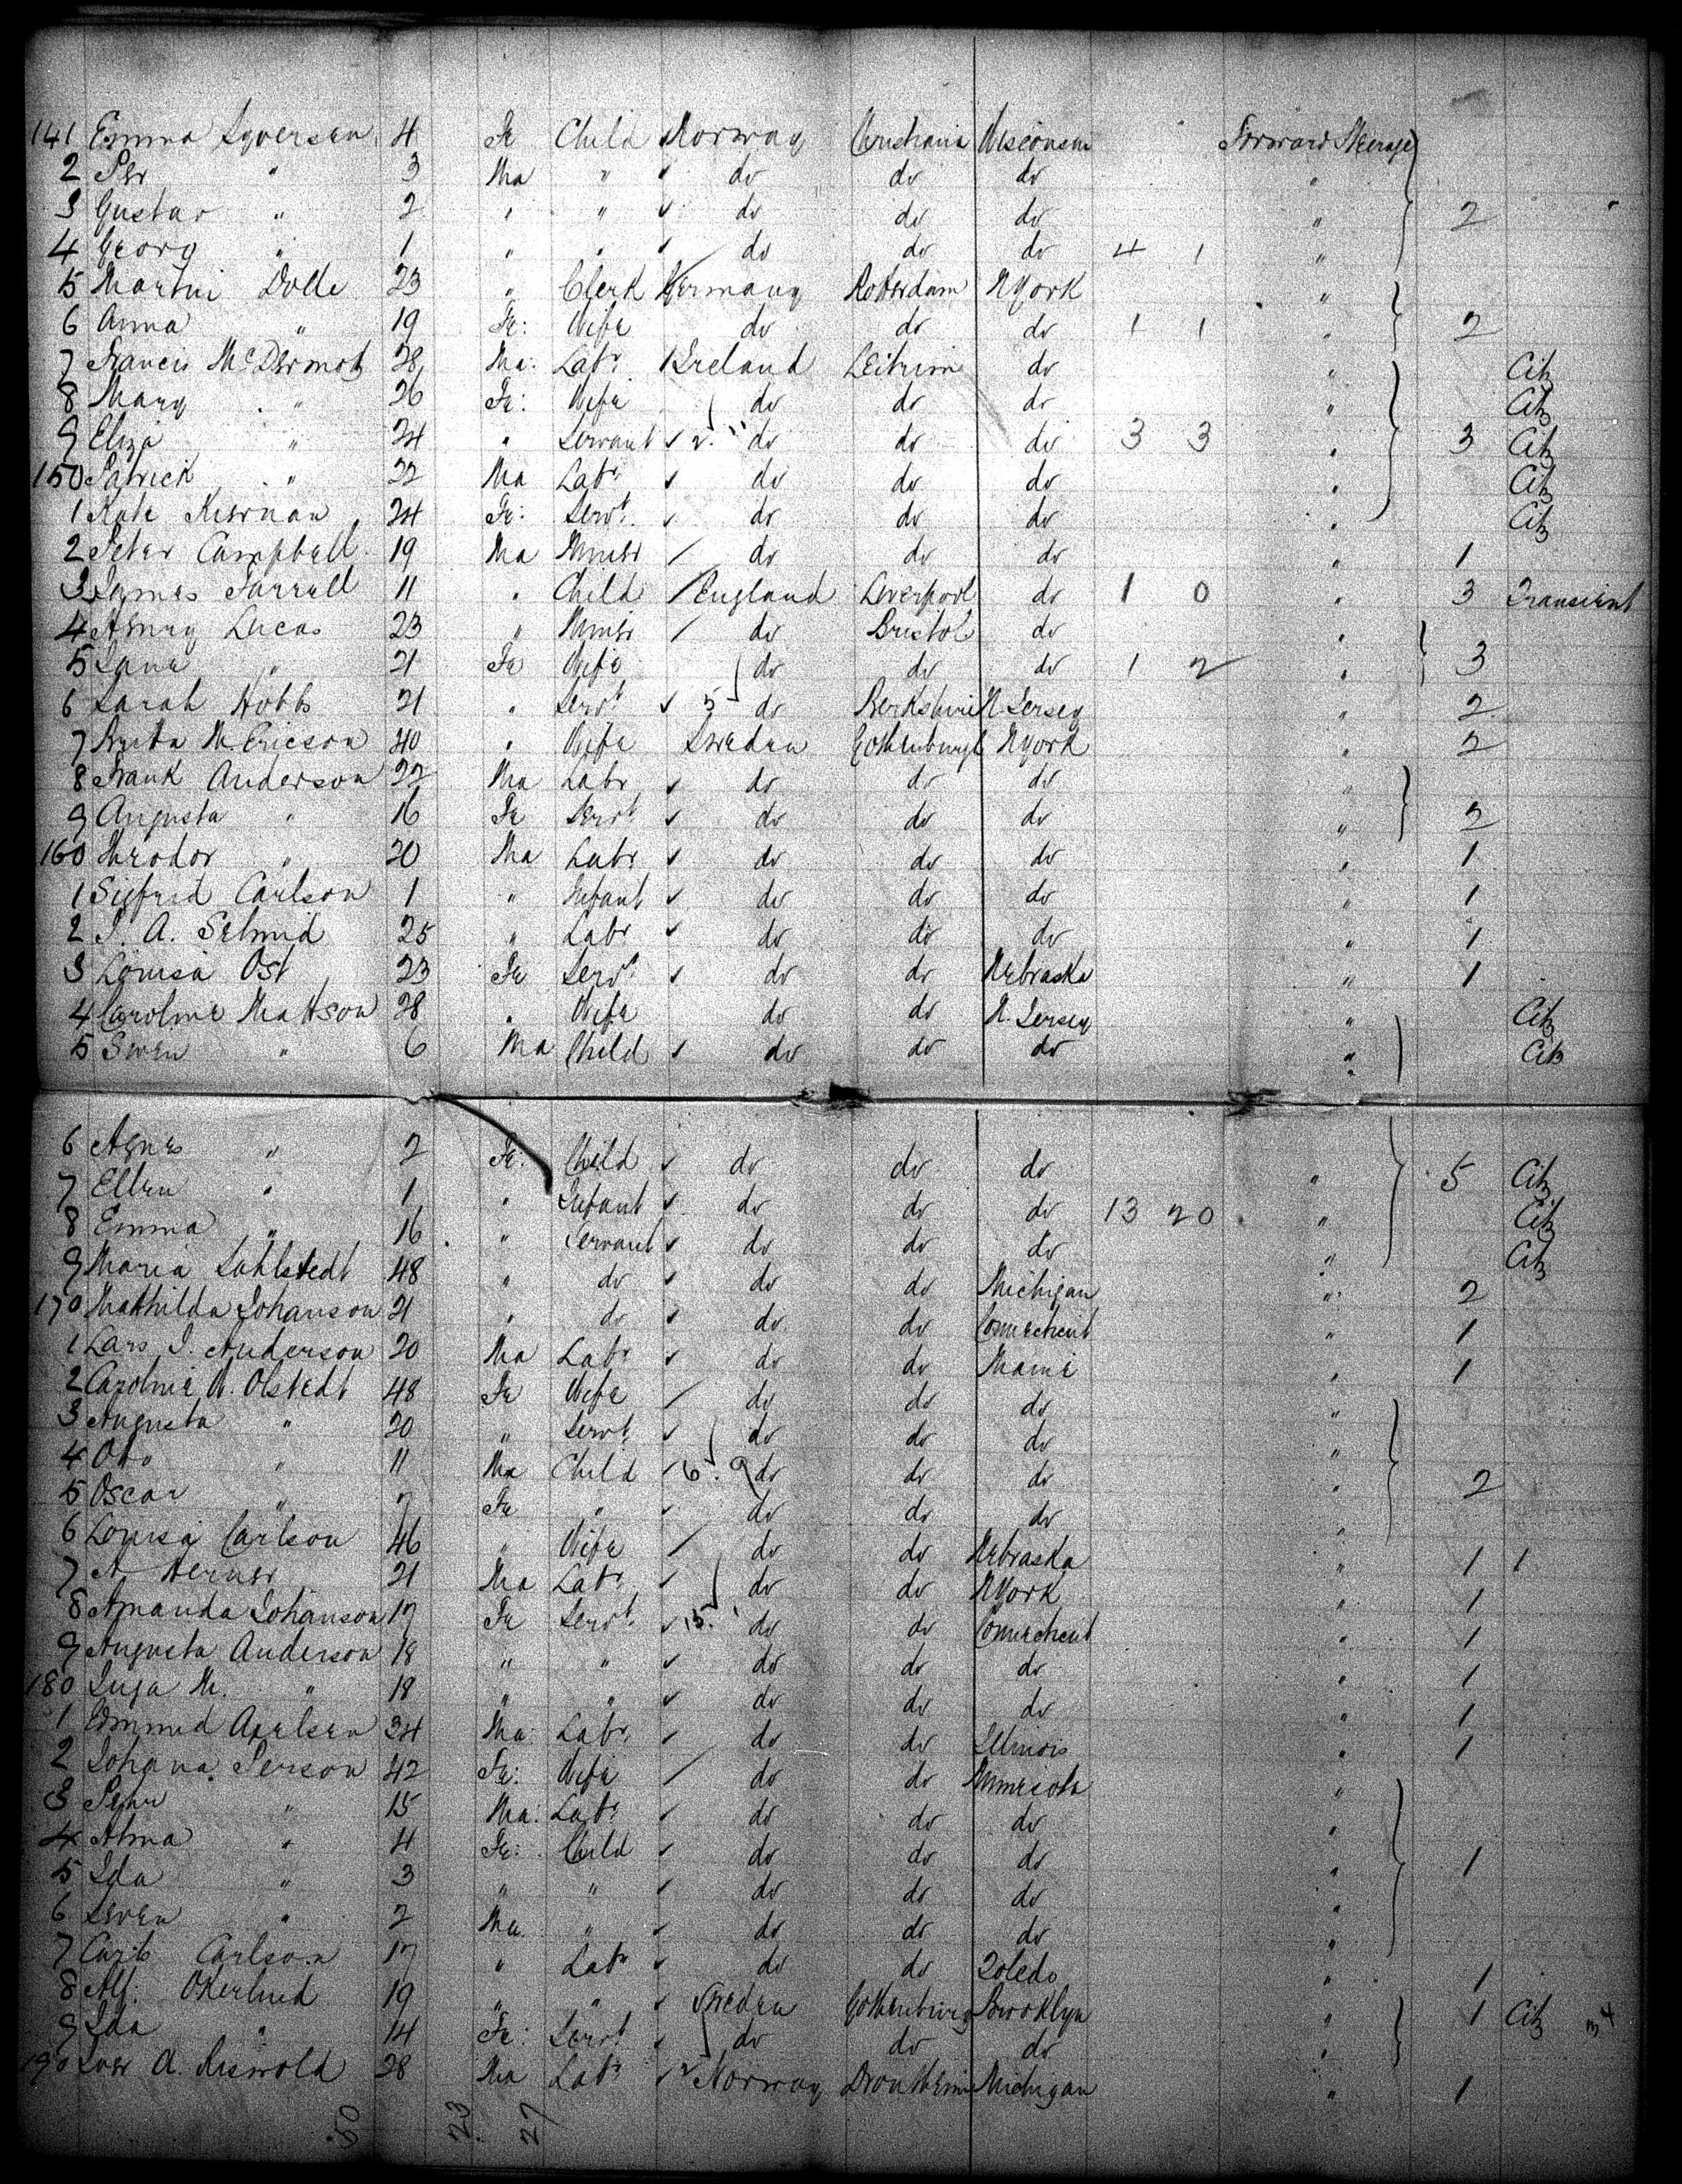 141 Emma Syversen 4 Fe Child Norway Christiania Wisconsin Forward Steerage
2 Per " 3 Ma " do do do "
3 Gustav " 2 " " do do do " 2
4 Georg " 1 " " do do do 4 1 "
5 Martin Dolle 23 " Clerk Germany Rotterdam NYork "
6 Anna " 19 Fe: Wife do do do 1 1 " 2
7 Francis McDermott 28 Ma: Labr Ireland Leitrim do " Citz
8 Mary " 26 Fe: Wife do do do " Citz
9 Eliza " 24 " Servant 2 do do do 3 3 " 3 Citz
150 Patrick " 22 Ma Labr do do do " Citz
1 Kate Kiernan 24 Fe: Servt do do do " Citz
2 Peter Campbell 19 Ma Miner do do do " 1
3 James Farrell 11 " Child England Liverpool do 1 0 " 3 Transient
4 Henry Lucas 23 " Miner do Bristol do "
5 Jane " 21 Fe Wife do do do 1 2 " 3
6 Sarah Hobbs 21 " Servt 5 do Berkshire N Jersey " 2
7 Britta M. Ericson 40 " Wife Sweden Gothenburgh NYork " 2
8 Frank Anderson 22 Ma Labr do do do "
9 Augusta " 16 Fe Servt do do do " 2
160 " 20 Ma Labr do do do " 1
1 Sigfrid Carlson 1 " Infant do do do " 1
2 J. A. Schmid 25 " Labr do do do " 1
3 Louisa Ost 23 Fe Servt do do Nebraska " 1
4 Caroline Mattson 28 " Wife do do N. Jersey " Citz
5 Swen " 6 Ma Child do do do " Citz
6 Agnes " 2 Fe: Child do do do " 5 Citz
7 Ellen " 1 " Infant do do do 13 20 " Citz
8 Emma " 16 " Servant do do do " Citz
9 Maria Sahlstedt 48 " do do do Michigan " 2
170 Mathilda Johanson 21 " do do do Connecticut " 1
1 Lars J. Anderson 20 Ma Labr do do Maine " 1
2 Caroline W. Olstedt 48 Fe Wife do do do "
3 Augusta " 20 " Servt do do do "
4 Otto " 11 Ma Child 6 9 do do do " 2
5 Oscar " 7 Fe " do do do "
6 Louisa Carlson 46 " Wife do do Nebraska " 1 1
7 A Herner 21 Ma Labr do do NYork " 1
8 Amanda Johanson 17 Fe Servt 15 do do Connecticut " 1
9 Augusta Anderson 18 " " do do do " 1
180 Inga M. " 18 " " do do do " 1
1 Edmund Axelsen 34 Ma: Labr do do Illinois " 1
2 Johana Person 42 Fe: Wife do do Minnesota "
3 Pehr " 15 Ma: Labr do do do "
4 Alma " 4 Fe: Child do do do " 1
5 Ida " 3 " " do do do "
6 Swen " 2 Ma " do do do "
7 Carl Carlson 17 " Labr do do Toledo " 1
8 Alf. Okerlund 19 " " Sweden Gothenburg Brooklyn " 1 Citz 34
9 Ida " 14 Fe: Servt do do do "
190 Iver A. Riswold 28 Ma Labr 2 Norway Drontheim Michigan " 1
50 23 27